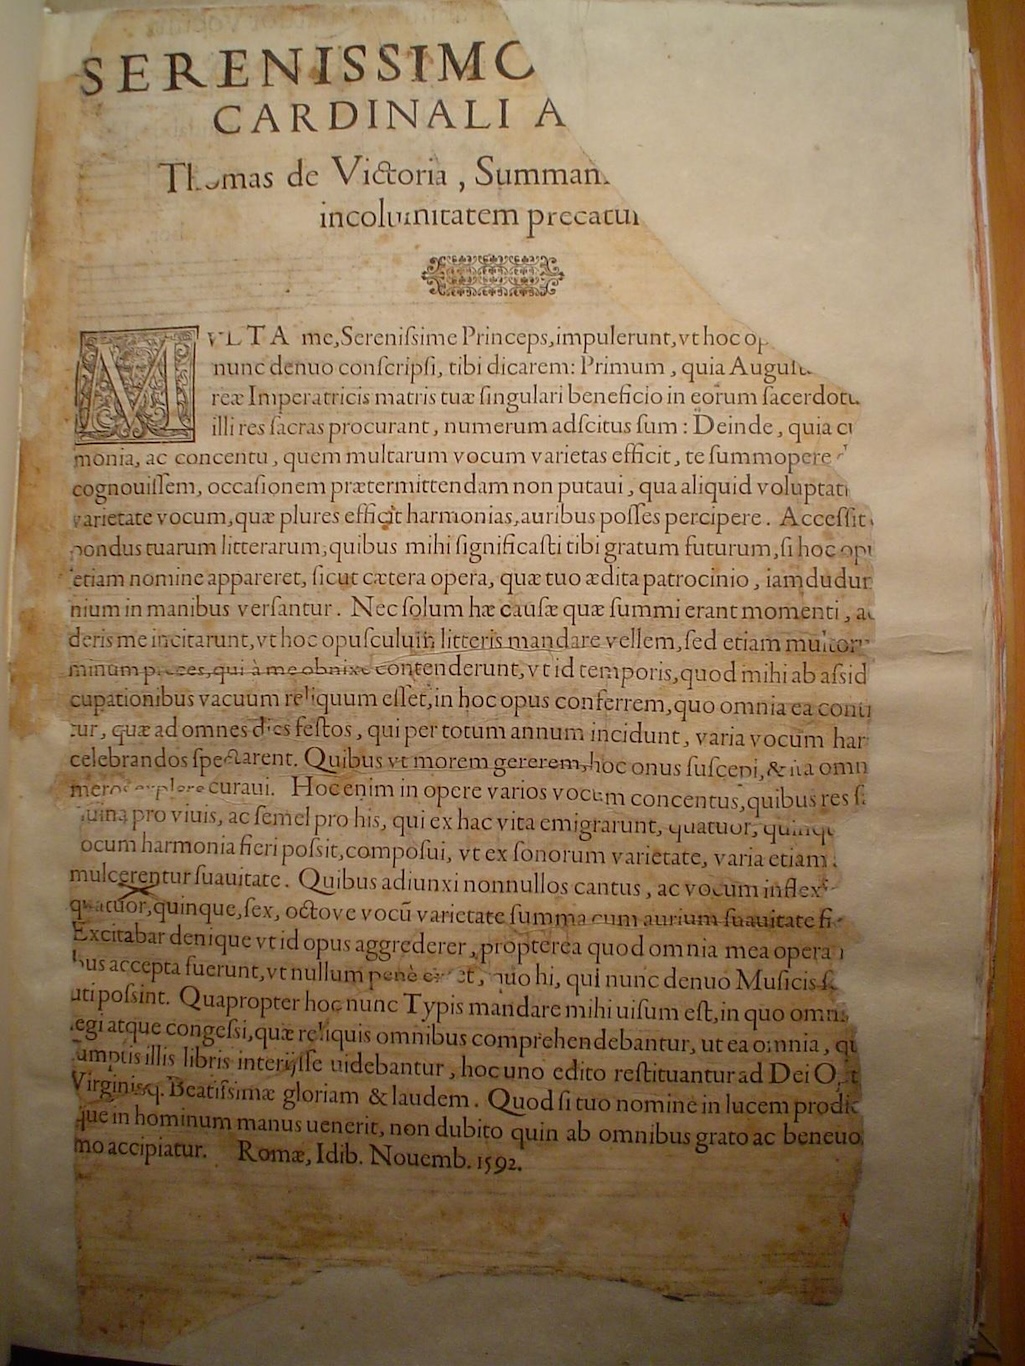 SERENISSIMO
CARDINALI A
Thomas de Victoria, Summam
incolumitatem precatur
MVLTA me, Sereniſsime Princeps, impulerunt, vt hoc op
nunc denuo conſcripſi, tibi dicarem: Primum, quia Auguſt
reæ Imperatricis matris tuæ ſingulari beneficio in eorum ſacerdotu
illi res ſacras procurant, numerum adſcitus ſum: Deinde, quia cu
monia, ac concentu, quem multarum vocum varietas efficit, te ſummopere
cognouiſſem, occaſionem prætermittendam non putaui, qua aliquid voluptati
varietate vocum, quæ plures efficit harmonias, auribus poſſes percipere. Acceſſit
pondus tuarum litterarum, quibus mihi ſignificaſti tibi gratum futurum, ſi hoc opu
etiam nomine appareret, ſicut cætera opera, quæ tuo ædita patrocinio, iamdudum
nium in manibus verſantur. Nec ſolum hæ cauſæ quæ ſummi erant momenti, ac
deris me incitarunt, vt hoc opuſculum litteris mandare vellem, ſed etiam multor
minum preces, qui à me obnixe contenderunt, vt id temporis, quod mihi ab aſsid
cupationibus vacuum reliquum eſſet, in hoc opus conferrem, quo omnia ea conti
tur, quæ ad omnes dies feſtos, qui per totum annum incidunt, varia vocum har
celebrandos ſpectarent. Quibus vt morem gererem, hoc onus ſuſcepi, & ita omn
meros explere curaui. Hoc enim in opere varios vocum concentus, quibus res ſ
uina pro viuis, ac ſemel pro his, qui ex hac vita emigrarunt, quatuor, quinqu
ocum harmonia fieri poſsit, compoſui, vt ex ſonorum varietate, varia etiam
mulcerentur ſuauitate. Quibus adiunxi nonnullos cantus, ac vocum inflex
quatuor, quinque, ſex, octove vocū varietate ſumma cum aurium ſuauitate fi
Excitabar denique vt id opus aggrederer, propterea quod omnia mea opera
bus accepta fuerunt, vt nullum penè eſſet, quo hi, qui nunc denuo Muſicis ſ
uti poſsint. Quapropter hoc nunc Typis mandare mihi uiſum eſt, in quo omni
egi atque congeſsi, quæ reliquis omnibus comprehendebantur, ut ea omnia, qu
umptis illis libris interijſſe uidebantur, hoc uno edito reſtituantur ad Dei Opt
Virginisq. Beatiſsimæ gloriam & laudem. Quod ſi tuo nomine in lucem prodie
que in hominum manus uenerit, non dubito quin ab omnibus grato ac beneuo
mo accipiatur. Romæ, Idib. Nouemb. 1592.